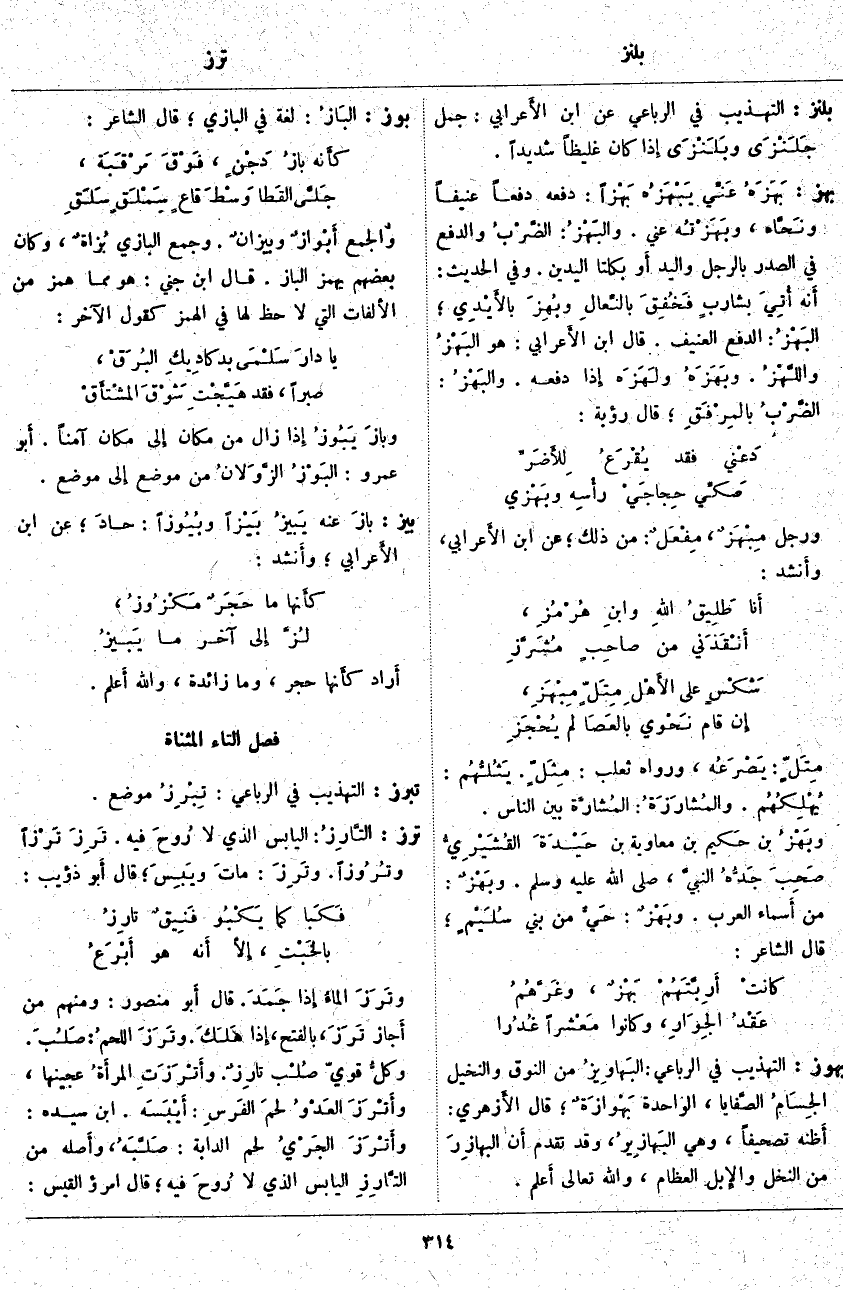 بلنز
ترز
بلنز : التهذيب في الرباعي عن ابن الأعرابي : جمل
جَلَنْزَى وبَلَنْزَى إذا كان غليظاً شديداً .
بهز : بَهَزَهُ عَنِّي يَبْهَزُه بَهْزاً : دفعه دفعاً عنيفاً
ونَحَّاه ، وبَهَزْتُه عني . والبَهْزُ : الضَّرْبُ والدفع
في الصدر بالرجل واليد أو بكلتا اليدين . وفي الحديث :
أنه أُتيَ بشاربٍ فَخُفِقَ بالنِّعال وبُهِزَ بالأَيْدِي ؛
البَهْزُ : الدفع العنيف . قال ابن الأعرابي : هو البَهْزُ
واللَّهْزُ . وبَهَزَهُ ولَهَزَه إذا دفعه . والبَهْزُ :
الضَّرْبُ بالمِرْفَقِ ؛ قال رؤبة :
دَعْني فقد يُقْرَعُ لِلأَضَزِّ
صَكِّي حِجاجَيْ رأْسِه وبَهْزي
ورجل مِبْهَزٌ ، مِفْعَلٌ : من ذلك ؛ عن ابن الأعرابي ،
وأنشد :
أنا طَلِيقُ اللهِ وابنِ هُرْمُزِ ،
أَنْقَذَني من صاحبٍ مُشَرِّزِ
شَكْسٍ على الأَهْلِ مِتَلٍّ مِبْهَزِ ،
إن قام نَحْوي بالعَصَا لم يُحْجَزِ
مِتَلٍّ : يَصْرَعُه ، ورواه ثعلب : مِثَلٍّ . يَثُلُّهُم :
يُهْلِكُهُم . والمُشارَزَةُ : المُشارَّة بين الناس .
وبَهْزُ بن حَكيم بن معاوية بن حَيْدَةَ القُشَيْرِيُّ
صَحِبَ جَدُّه النبيَّ ، صلى الله عليه وسلم . وبَهْزٌ :
من أسماء العرب . وبَهْزٌ : حَيٌّ من بني سُلَيْمٍ ؛
قال الشاعر :
كانتْ أَرِبَّتَهُمْ بَهْزٌ ، وغَرَّهُمُ
عَقْدُ الجِوَارِ ، وكانوا مَعْشَراً غُدُرا
بهوز : التهذيب في الرباعي : البَهاوِيزُ من النوق والنخيل
الجِسَامُ الصَّفايا ، الواحدة بَهْوازَةٌ ؛ قال الأزهري :
أظنه تصحيفاً ، وهي البَهازِيرُ ، وقد تقدم أن البهازِرَ
من النخل والإبل العظام ، والله تعالى أعلم .
بوز : البَازُ : لغة في البازي ؛ قال الشاعر :
كأَنه بازُ دَجْنٍ ، فَوْقَ مَرْقَبَة ،
جَلَّى القَطا وَسْطَ قاعٍ سَمْلَقٍ سَلَقِ
والجمع أَبْوازٌ وبِيزانٌ . وجمع البازي بُزاةٌ ، وكان
بعضهم يهمز الباز . قال ابن جني : هو مما همز من
الألفات التي لا حظ لها في الهمز كقول الآخر :
يا دارَ سَلْمَى بدكادِيكِ البُرَقْ ،
صبراً ، فقد هَيَّجْتِ شَوْقَ المُشْتأَقْ
وبازَ يَبُوزُ إذا زال من مكان إلى مكان آمناً . أبو
عمرو : البَوْزُ الزَّوَلانُ من موضع إلى موضع .
بيز : بازَ عنه يَبيزُ بَيْزاً وبُيُوزاً : حادَ ؛ عن ابن
الأَعرابي ؛ وأَنشد :
كأَنها ما حَجَرٌ مَكْزُوزُ ،
لُزَّ إلى آخر ما يَبيزُ
أَراد كأَنها حجر ، وما زائدة ، والله أعلم .
فصل التاء المثناة
تبرز : التهذيب في الرباعي : تِبْرِزُ موضع .
ترز : التَّارِزُ : اليابس الذي لا رُوحَ فيه . تَرِزَ تَرْزاً
وتُرُوزاً . وتَرِزَ : ماتَ ويَبِسَ ؛ قال أبو ذؤيب :
فَكَبَا كما يَكْبُو فَنِيقٌ تارِزُ
بالخَبْتِ ، إلاَّ أنه هو أَبْرَعُ
وتَرَزَ الماءُ إذا جَمَدَ . قال أبو منصور : ومنهم من
أجاز تَرَزَ ، بالفتح ، إذا هَلَكَ . وتَرَزَ اللحمُ : صَلُبَ .
وكلُّ قويّ صُلْب تارِزٌ . وأَتْرَزَتِ المرأَةُ عجينها ،
وأَتْرَزَ العَدْوُ لحمَ الفَرَسِ : أَيْبَسَه . ابن سيده :
وأَتْرَزَ الجَرْيُ لحم الدابة : صَلَّبَهُ ، وأصله من
التَّارِزِ اليابس الذي لا رُوحَ فيه ؛ قال امرؤ القيس :
٣١٤